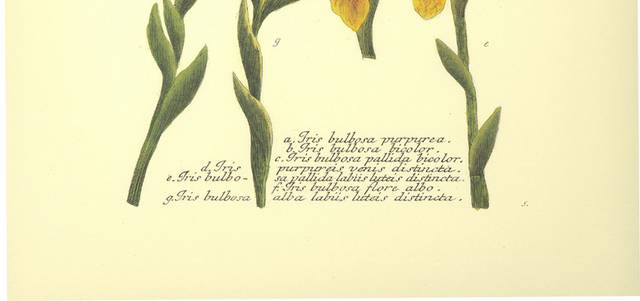 g
e
a. Iris bulbosa purpurea.
b. Iris bulbosa bicolor.
c. Iris bulbosa pallida bicolor.
d. Iris purpureis venis distincta.
e. Iris bulbo- sa pallida labiis luteis distincta.
f. Iris bulbosa flore albo.
g. Iris bulbosa alba labiis luteis distincta.
s.